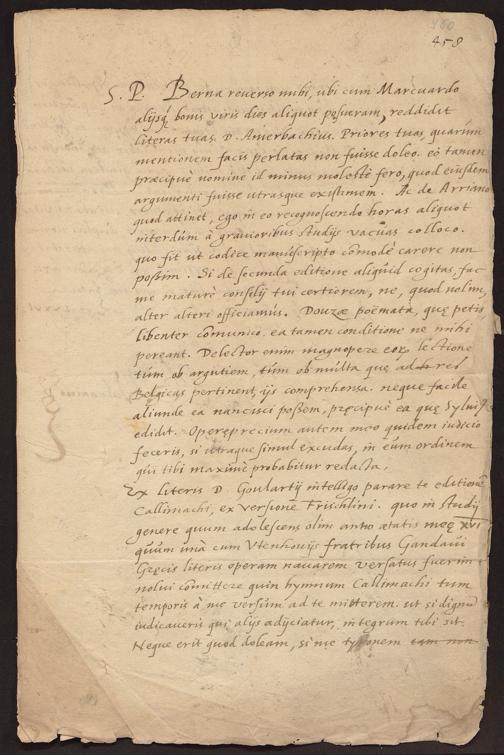 458
S. P. Berna reverso mihi, ubi cum Marcuardo
alijsq; bonis viris dies aliquot posueram, reddidit
literas tuas D. Amerbachius. Priores tuas, quarum
mentionem facis perlatas non fuisse doleo. eò tamen
præcipuè nomine id minus molestè fero, quod eiusdem
argumenti fuisse utrasque existimem. Ac de Arriano
quod attinet, ego in eo recognoscendo horas aliquot
interdum à gravioribus studijs vacuas colloco.
quo fit ut codice manuscripto cõmodè carere non
possim. Si de secunda editione aliquid cogitas, fac
me maturè consilij tui certiorem, ne, quod nolim,
alter alteri officiamus. Douzæ poëmata, quę petis
libenter cõmunico. ea tamen conditione ne mihi
pereant. Delector enim magnopere eor. lectione
tum ob argutiem, tum ob multa quę ad res
Belgicas pertinent, ijs comprehensa. neque facile
aliunde ea nancisci possem, pręcipuè ea quę Sylvius
edidit. Operęprecium autem meo quidem iudicio
feceris, si utraque simul excudas, in eum ordinem
qui tibi maximè probabitur redacta.
Ex literis D. Goulartij intelligo parare te editionẽ
Callimachi, ex versione Frischlini. quo in studij
genere quum adolescens olim anno ætatis meę XVI
quum unà cum Utenhovijs fratribus Gandavi
Gręcis literis operam navarem versatus fuerim
nolui cõmittere quin hymnum Callimachi tum
temporis à me versum ad te mitterem. ut si dignũ
iudicaveris qui alijs adijciatur, integrum tibi sit.
Neque erit quod doleam, si me tyronem tam non